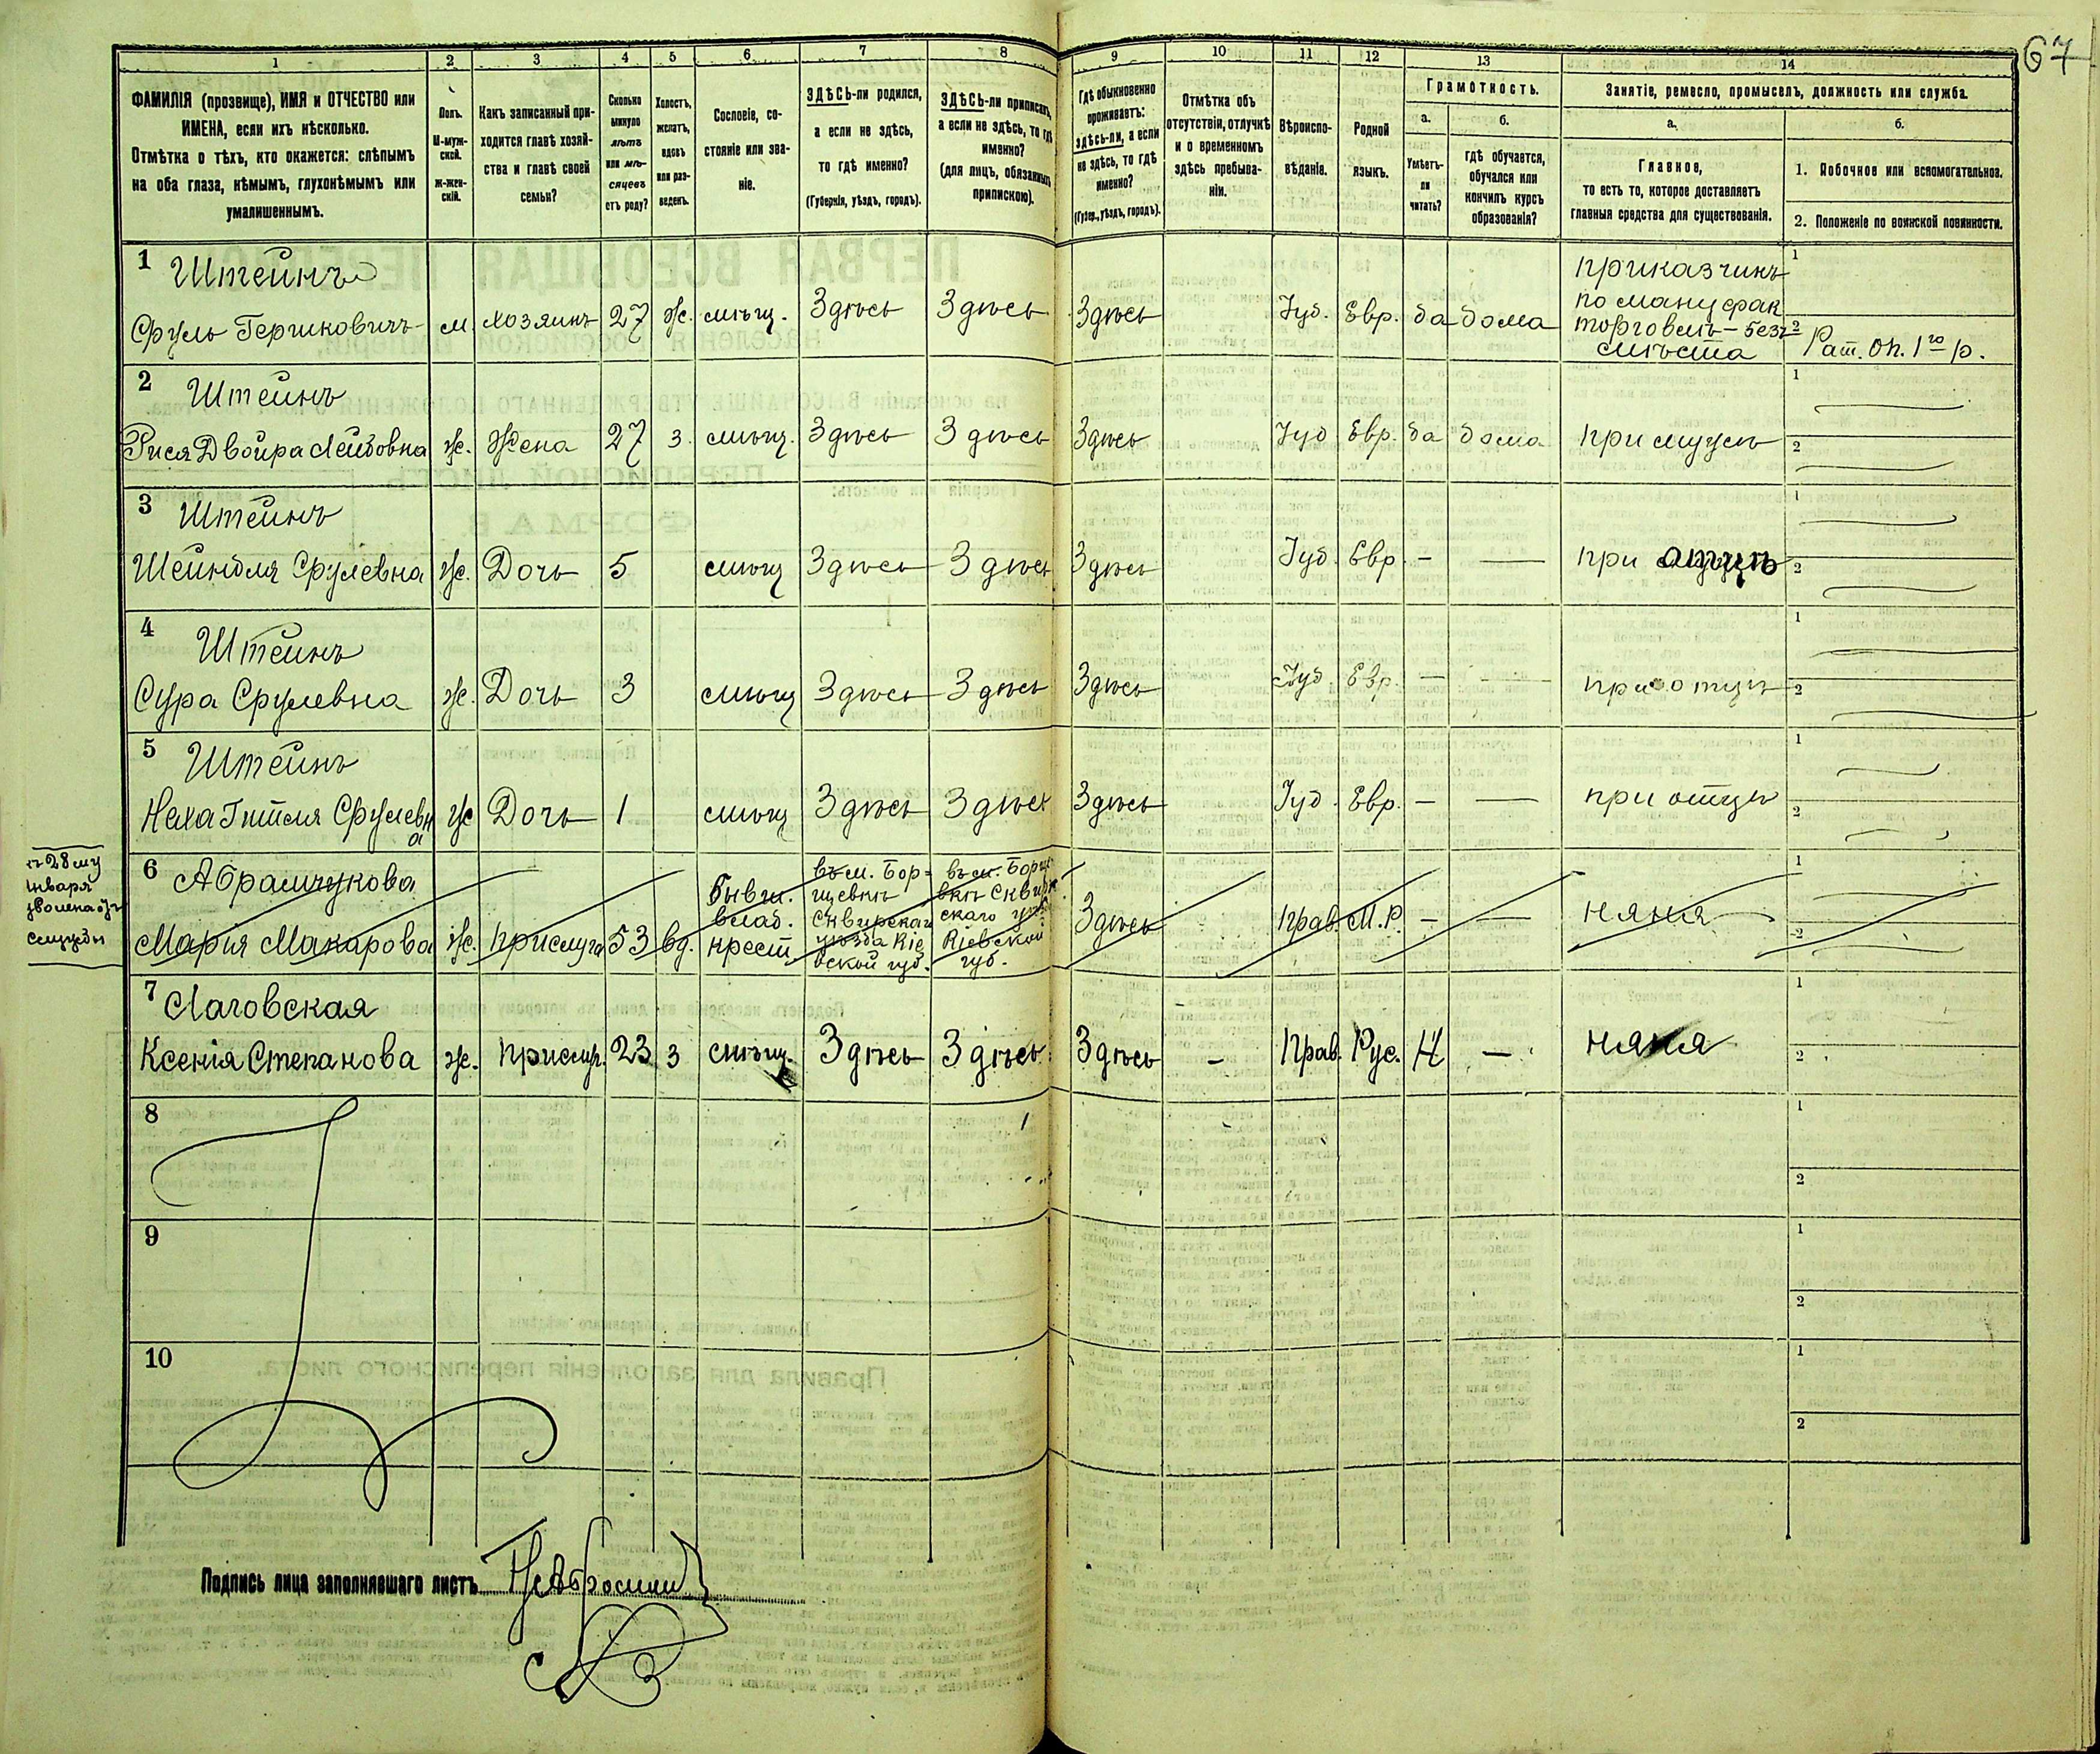 67
1 2 3 4 5 6 7 8 9 10 11 12 13 14
ФАМИЛІЯ (прозвище), ИМЯ и ОТЧЕСТВО или
ИМЕНА, если ихъ нѣсколько.
Отмѣтка о тѣхъ, кто окажется: слѣпымъ
на оба глаза, нѣмымъ, глухонѣмымъ или
умалишеннымъ.
Полъ.
М-муж-
ской.
Ж-жен-
скій.
Какъ записанный при-
ходится главѣ хозяй-
ства и главѣ своей
семьи?
Сколько
минуло
лѣтъ
или мѣ-
сяцевъ
отъ роду?
Холостъ,
женатъ,
вдовъ
или раз-
веденъ.
Сословіе, со-
стояніе или зва-
ніе.
ЗДѢСЬ-ли родился,
а если не здѣсь,
то гдѣ именно?
(Губернія, уѣздъ, городъ).
ЗДѢСЬ-ли приписанъ,
а если не здѣсь, то гдѣ
именно?
(для лицъ, обязанныхъ
припискою).
Гдѣ обыкновенно
проживаетъ:
здѣсь-ли, а если
не здѣсь, то гдѣ
именно?
(Губер., уѣздъ, городъ).
Отмѣтка объ
отсутствіи, отлучкѣ
и о временномъ
здѣсь пребыва-
ніи.
Вѣроиспо-
вѣданіе.
Родной
языкъ.
Грамотность.
а.
Умѣетъ-
ли
читать?
б.
гдѣ обучается,
обучался или
кончилъ курсъ
образованія?
Занятіе, ремесло, промыселъ, должность или служба.
а.
Главное,
то есть то, которое доставляетъ
главныя средства для существованія.
б.
1. Побочное или вспомогательное.
2. Положеніе по воинской повинности.
1 Штейнъ
Сруль Гершковичъ м. хозяинъ 27 ж. мѣщ. Здѣсь Здѣсь Здѣсь Іуд. Евр. да дома
приказчикъ
по мануфак
торговлѣ – безъ
мѣста
1
2 Рат. оп. 1го р.
2 Штейнъ
Рися Двойра Лейбовна ж. Жена 27 з. мѣщ. Здѣсь Здѣсь Здѣсь Іуд Евр. да дома при мужѣ
1
2
3 Штейнъ
Шейндля Срулевна ж. Дочь 5 мѣщ Здѣсь Здѣсь Здѣсь Іуд. Евр. – — при отцѣ
1
2
4 Штейнъ
Сура Срулевна ж. Дочь 3 мѣщ Здѣсь Здѣсь Здѣсь Іуд. Евр. – — при отцѣ
1
2
5 Штейнъ
Неха Гитля Срулевн
а
ж Дочь 1 мѣщ Здѣсь Здѣсь Здѣсь Іуд. Евр. – — при отцѣ
1
2
января
службы
6 Абрамчукова
Мария Макарова ж. прислуга 53 вд.
бывш.
влад.
крест.
въ м. Бор-
щевкѣ
Сквирскаго
уѣзда Кіе
вской губ.
въ м. Борще
вкѣ Сквир
скаго уѣз.
Кіевской
губ.
Здѣсь Прав. М.Р. – — няня
1
2
7 Лаговская
Ксенія Степанова ж. прислуг. 23 з мѣщ. Здѣсь Здѣсь Здѣсь – Прав. Рус. Н — няня
1
2
8
1
2
9
1
2
10
1
2
Подпись лица заполнявшаго листъ